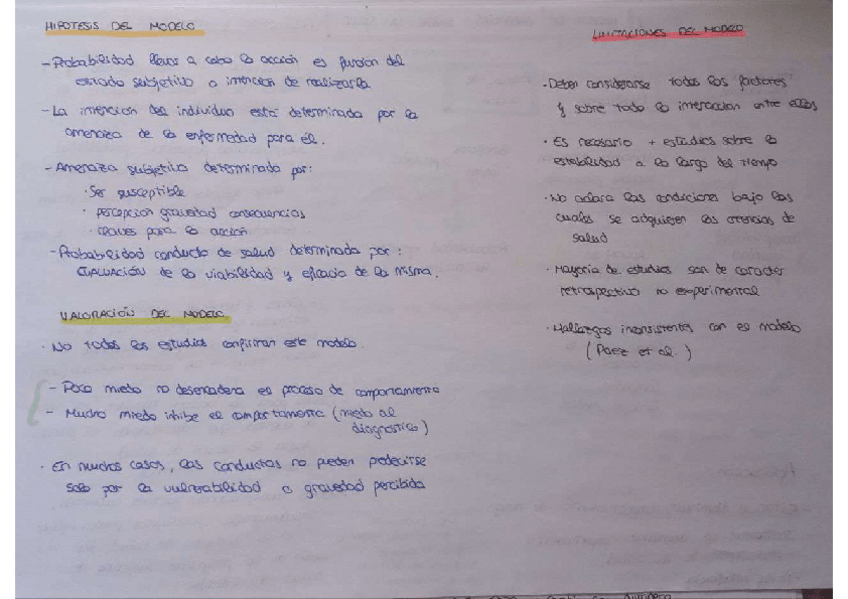 HIPOTESIS DEL MODELO
- Probabilidad llevar a cabo la acción es función del
estado subjetivo o intención de realizarla
- La intención del individuo está determinada por la
amenaza de la enfermedad para él.
- Amenaza subjetiva determinada por:
· Ser susceptible
· percepción gravedad consecuencias
· claves para la acción
- Probabilidad conducta de salud determinada por:
EVALUACIÓN de la viabilidad y eficacia de la misma.
VALORACIÓN DEL MODELO
· No todos los estudios confirman este modelo.
- Poco miedo no desencadena el proceso de comportamiento
- Mucho miedo inhibe el comportamiento (miedo al
diagnostico)
· En muchos casos, las conductas no pueden predecirse
solo por la vulnerabilidad o gravedad percibida
LIMITACIONES DEL MODELO
· Deben considerarse todos los factores
y sobre todo la interaccion entre ellos
· Es necesario + estudios sobre la
estabilidad a lo largo del tiempo
· No aclara las condiciones bajo las
cuales se adquieren las creencias de
salud
· Mayoría de estudios son de caracter
retrospectivo no experimental
· Hallazgos inconsistentes con el modelo
(Paez et al.)